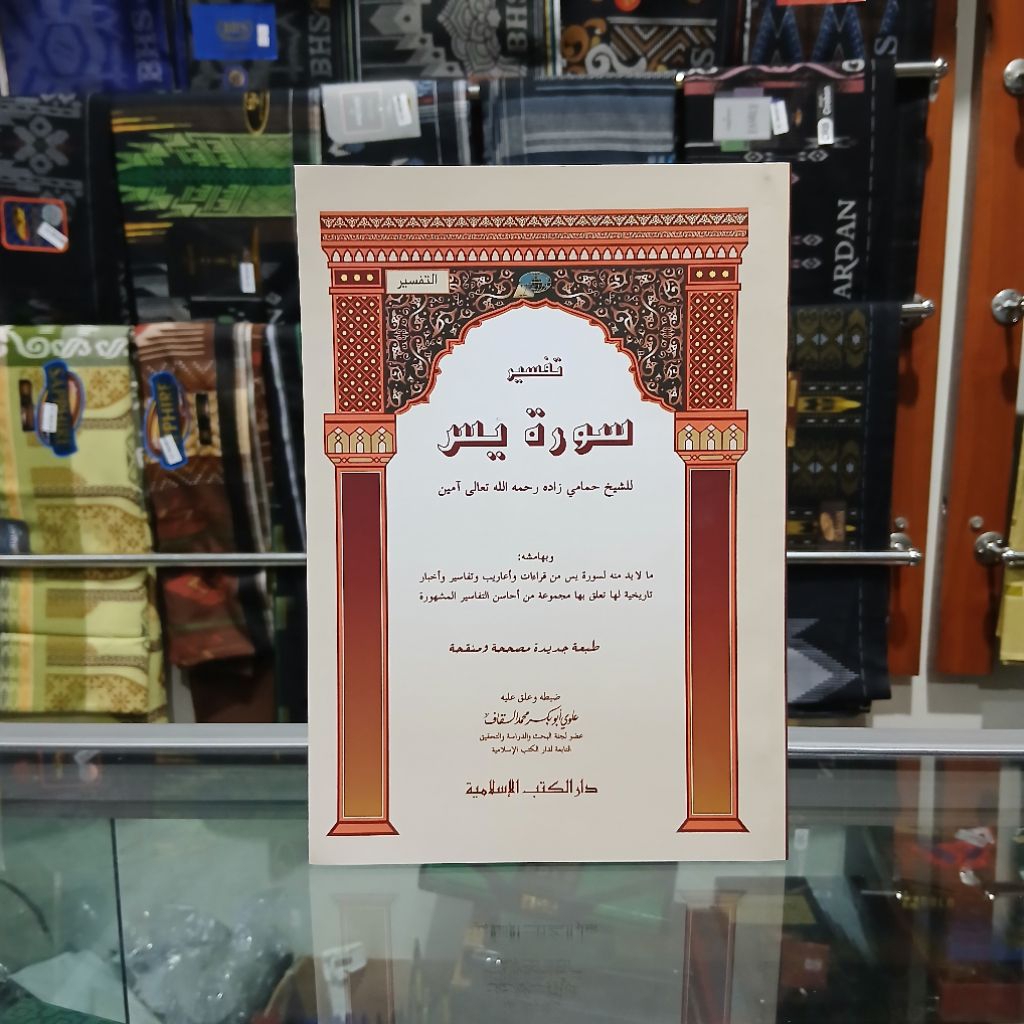 BHS
BHS
BHS
S
ARDAN
التفسير
تفسير
سورة يس
للشيخ حمامي زاده رحمه الله تعالى آمين
وبهامشه:
ما لا بد منه لسورة يس من قراءات وأعاريب وتفاسير وأخبار
تاريخية لها تعلق بها مجموعة من أحاسن التفاسير المشهورة
طبعة جديدة مصححة ومنقحة
ضبطه وعلق عليه
علوي أبو بكر محمد السقاف
عضو لجنة البحث والدراسة والتحقيق
التابعة لدار الكتب الإسلامية
دار الكتب الإسلامية